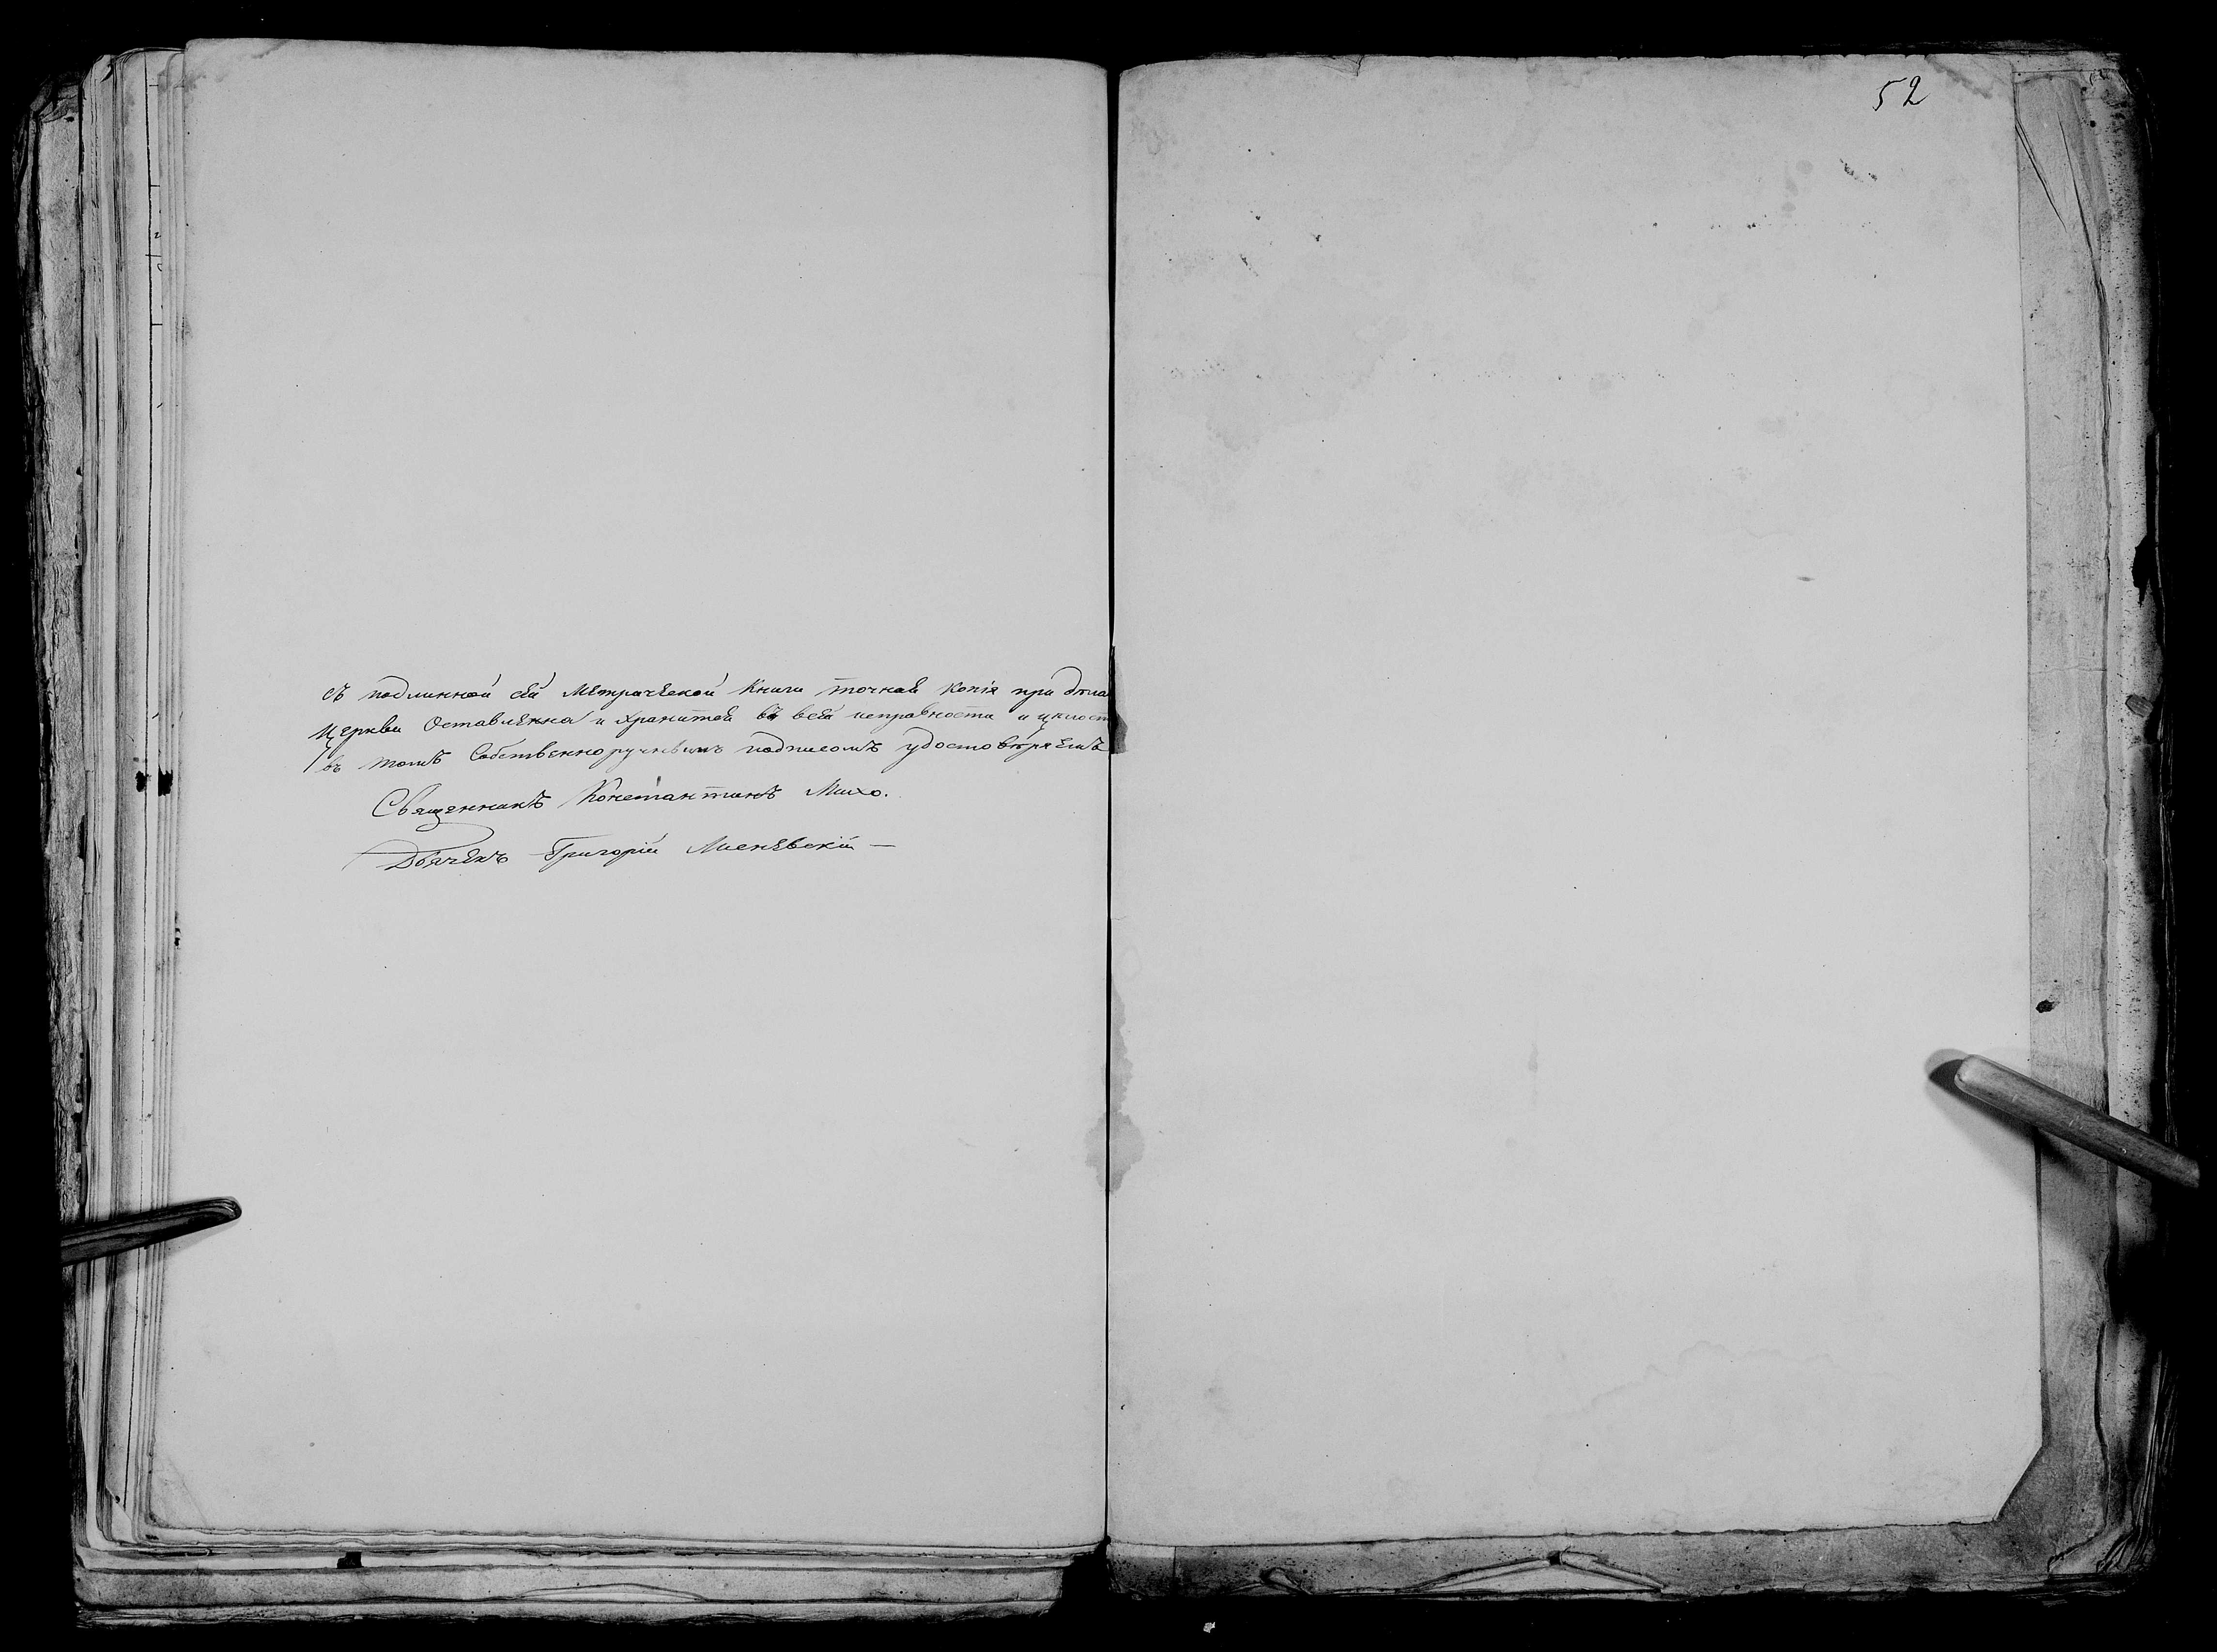 52
съ подлинной сей Метрической Книги точная копія при дѣла
Церкви Оставленна и хранится въ всей исправности и цѣлост
въ томъ Собственноручнымъ подписомъ удостовѣряемъ
Священникъ Константинъ Михо.
Дьячекъ Григорій Лисневскій —